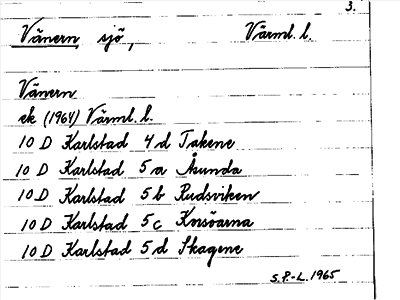 3.
Vänern, sjö, Värml. l.
Vänern
ek (1964) Värml. l.
10 D Karlstad 4 d Takene
10 D Karlstad 5 a Åkunda
10 D Karlstad 5 b Rudsviken
10 D Karlstad 5 c Korsöarna
10 D Karlstad 5 d Skagene
S.P.-L. 1965